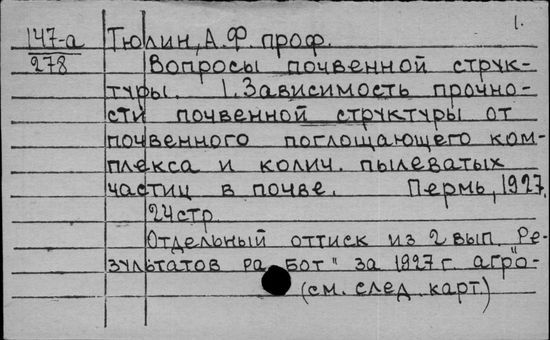 1.
147-а Тюлин, А.Ф. проф.
278 Вопросы почвенной струк-
туры. 1. Зависимость прочно-
сти почвенной структуры от
почвенного поглощающего ком-
плекса и колич. пылеватых
частиц в почве. Пермь, 1927.
24 стр.
Отдельный оттиск из 2 вып. "Ре-
зультатов работ" за 1927 г. агро-
(см. след. карт.)